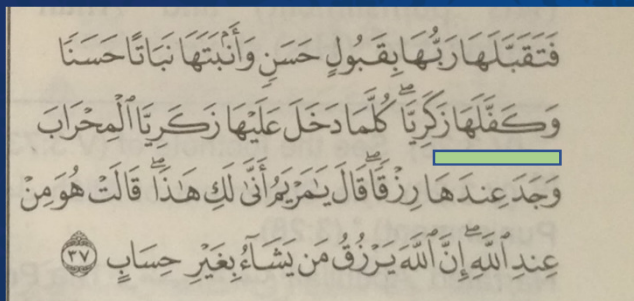 فَتَقَبَّلَهَا رَبُّهَا بِقَبُولٍ حَسَنٍ وَأَنۢبَتَهَا نَبَاتًا حَسَنًا
وَكَفَّلَهَا زَكَرِيَّا ۖ كُلَّمَا دَخَلَ عَلَيْهَا زَكَرِيَّا ٱلْمِحْرَابَ
وَجَدَ عِندَهَا رِزْقًا ۖ قَالَ يَـٰمَرْيَمُ أَنَّىٰ لَكِ هَـٰذَا ۖ قَالَتْ هُوَ مِنْ
عِندِ ٱللَّهِ ۖ إِنَّ ٱللَّهَ يَرْزُقُ مَن يَشَآءُ بِغَيْرِ حِسَابٍ ٣٧